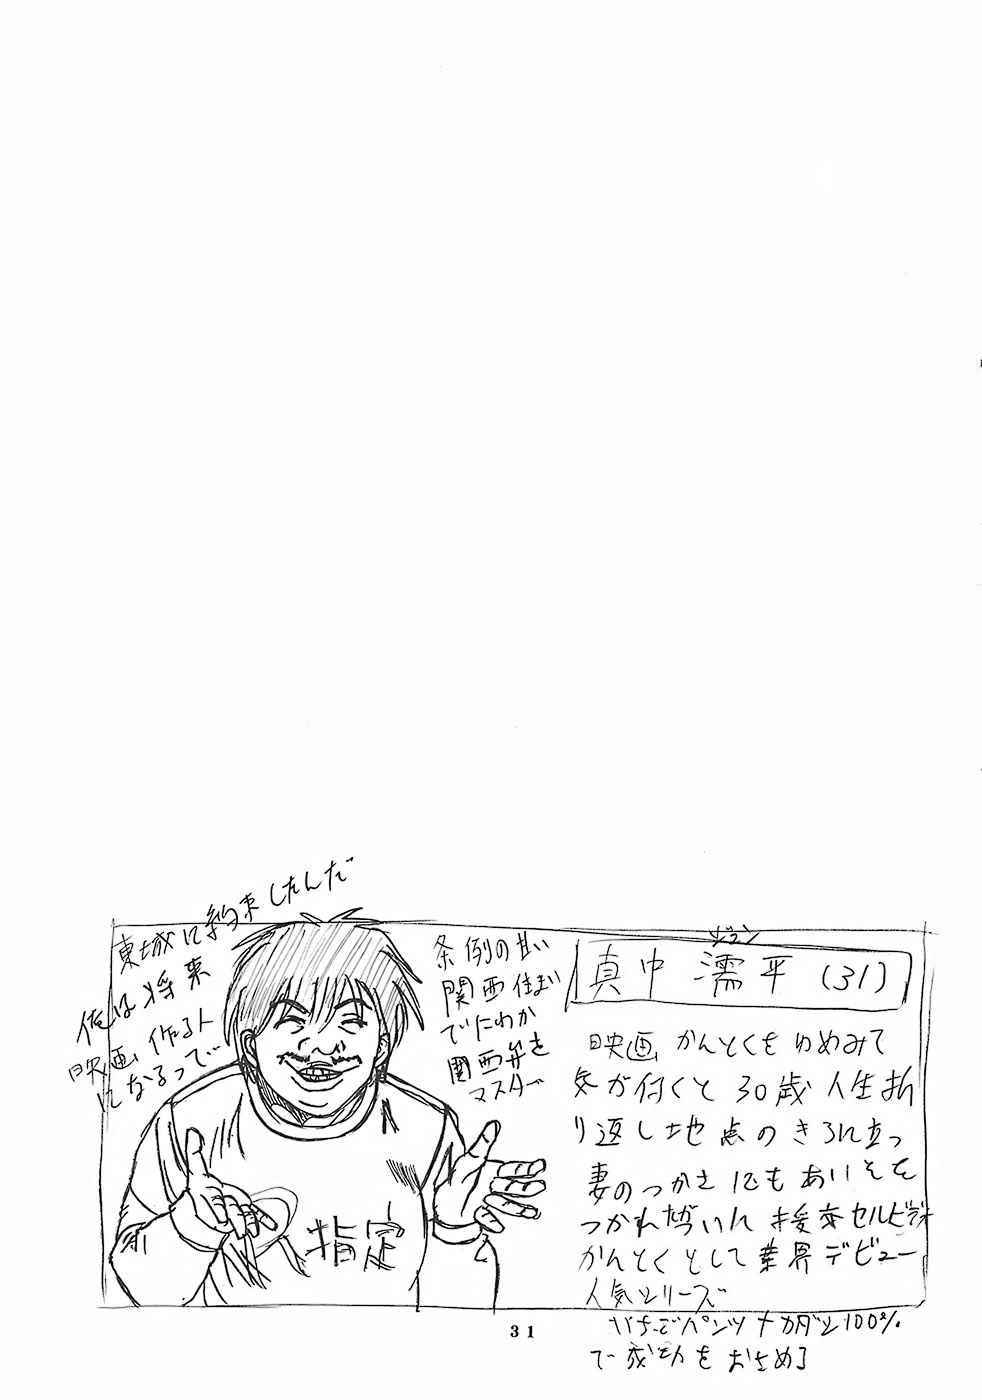 東城に約束したんだ
俺は将来
映画作る人
になるって…
条例の甘い
関西住まい
でにわか
関西弁を
マスター
ジュン
真中 濡平 (31)
映画かんとくをゆめみて
気が付くと30歳人生折
り返し地点のきろに立つ
妻のつかさにもあいそを
つかれ
かんとくとして業界デビュー
人気シリーズ
いちごパンツ 100%
で成功をおさめる
指定
31